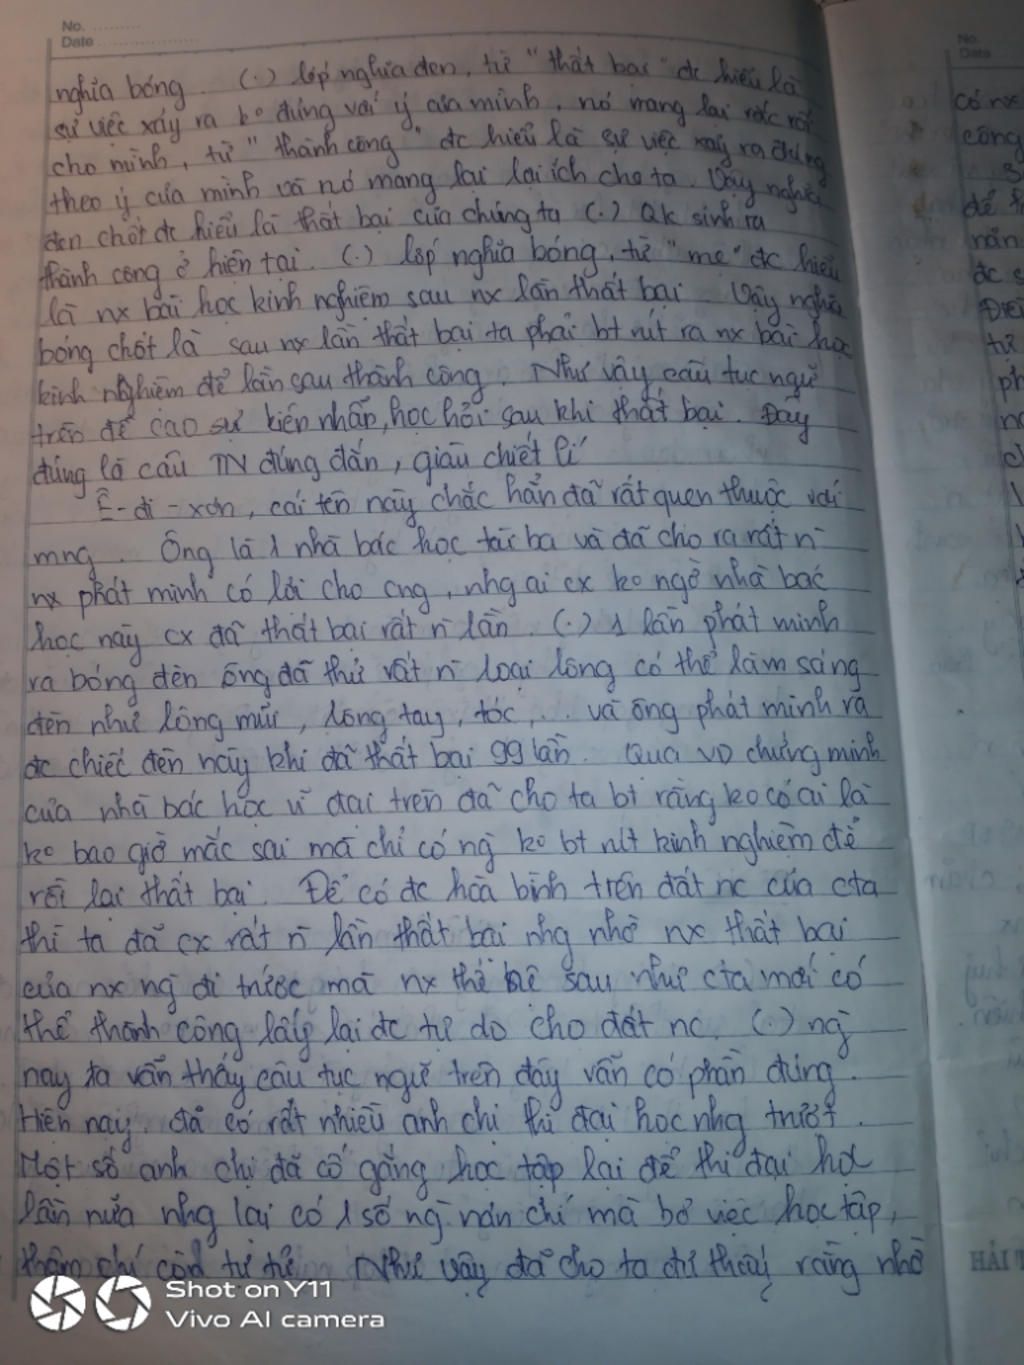 No.
Date
nghĩa bóng. (.) lớp nghĩa đen, từ "thất bại" đc hiểu là
sự việc xảy ra ko đúng với ý của mình, nó mang lại rắc rối
cho mình, từ "thành công" đc hiểu là sự việc xảy ra đúng
theo ý của mình và nó mang lại lợi ích cho ta. Vậy nghĩa
đen chốt đc hiểu là thất bại của chúng ta (.) Qk sinh ra
thành công ở hiện tại. (.) lớp nghĩa bóng, từ "mẹ" đc hiểu
là nx bài học kinh nghiệm sau nx lần thất bại. Vậy nghĩa
bóng chốt là sau nx lần thất bại ta phải bt rút ra nx bài học
kinh nghiệm để lần sau thành công. Như vậy, câu tục ngữ
trên đề cao sự kiên nhẫn, học hỏi sau khi thất bại. Đây
đúng là câu TN đúng đắn, giàu chiết lí
Ê-đi-xơn, cái tên này chắc hẳn đã rất quen thuộc với
mng. Ông là 1 nhà bác học tài ba và đã cho ra rất n
nx phát minh có lời cho cng, nhg ai cx ko ngờ nhà bác
học này cx đã thất bại rất n lần. (.) 1 lần phát minh
ra bóng đèn ông đã thử rất n loại lông có thể làm sáng
đèn như lông mũi, lông tay, tóc, ... và ông phát minh ra
đc chiếc đèn này khi đã thất bại 99 lần. Qua VD chứng minh
của nhà bác học vĩ đại trên đã cho ta bt rằng ko có ai là
ko bao giờ mắc sai mà chỉ có ng ko bt rút kinh nghiệm để
rồi lại thất bại. Để có đc hòa bình trên đất nc của cta
thì ta đã cx rất n lần thất bại nhg nhờ nx thất bại
của nx ng đi trước mà nx thế hệ sau như cta mới có
thể thành công lấy lại đc tự do cho đất nc. (.) ng
nay ta vẫn thấy câu tục ngữ trên đây vẫn có phần đúng.
Hiện nay, đã có rất nhiều anh chị thi đại học nhg trượt.
Một số anh chị đã cố gắng học tập lại để thi đại học
lần nữa nhg lại có 1 số ng nản chí mà bỏ việc học tập,
thậm chí còn tự tử. Như vậy đã cho ta thấy rằng nhờ
No.
Date
có nx
công
để
nản
đc s
từ
ph
HẢI
Shot on Y11
Vivo AI camera